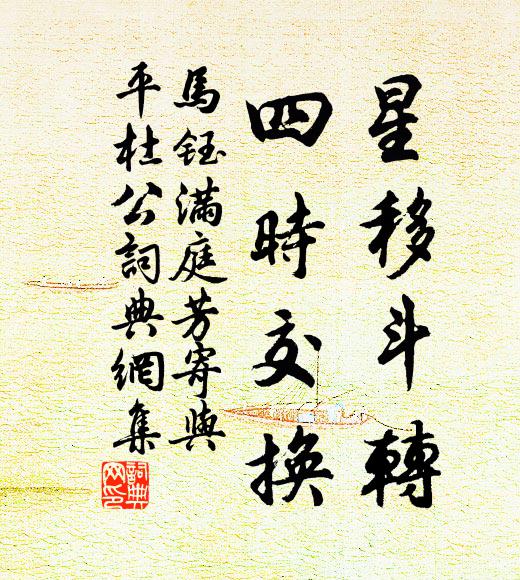 星移斗轉
四時交換
馬鈺滿庭芳寄與
平杜公詞典網集
詞典网印